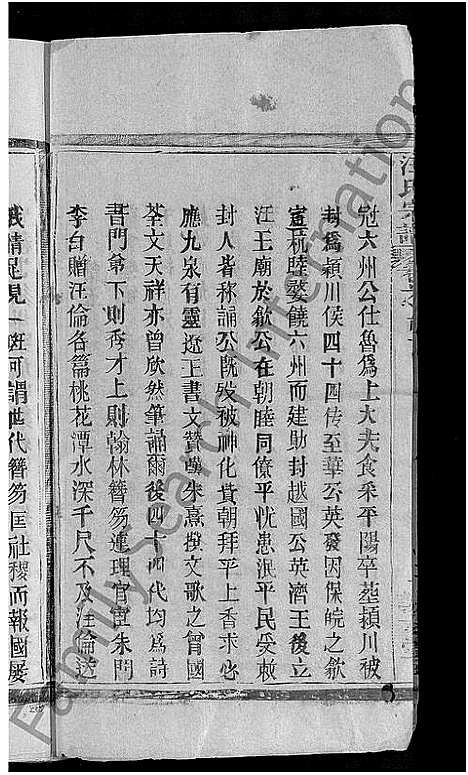 汪氏宗譜
冠六州公仕魯爲上大夫食采平陽卒葬潁川被
封爲潁川侯四十四传至華公英發因保皖之歙
宣杭睦婺饒六州而建勛封越國公英濟王後立
汪王廟於歙公在朝睦同僚平忧患泯平民受敕
封人皆称誦公旣殁被神化黄朝拜平上香求必
應九泉有靈 王書文赞 朱熹撰文歌之曾國
荃文天祥亦曾欣然筆誦爾後四十四代均爲詩
書門第下則秀才上則翰林簪笏連理官宦朱門
李白贈汪倫各篇桃花潭水深千尺不及汪倫送
我情足見一斑可謂世代簪笏匡社稷而報國屡
FamilySearch International